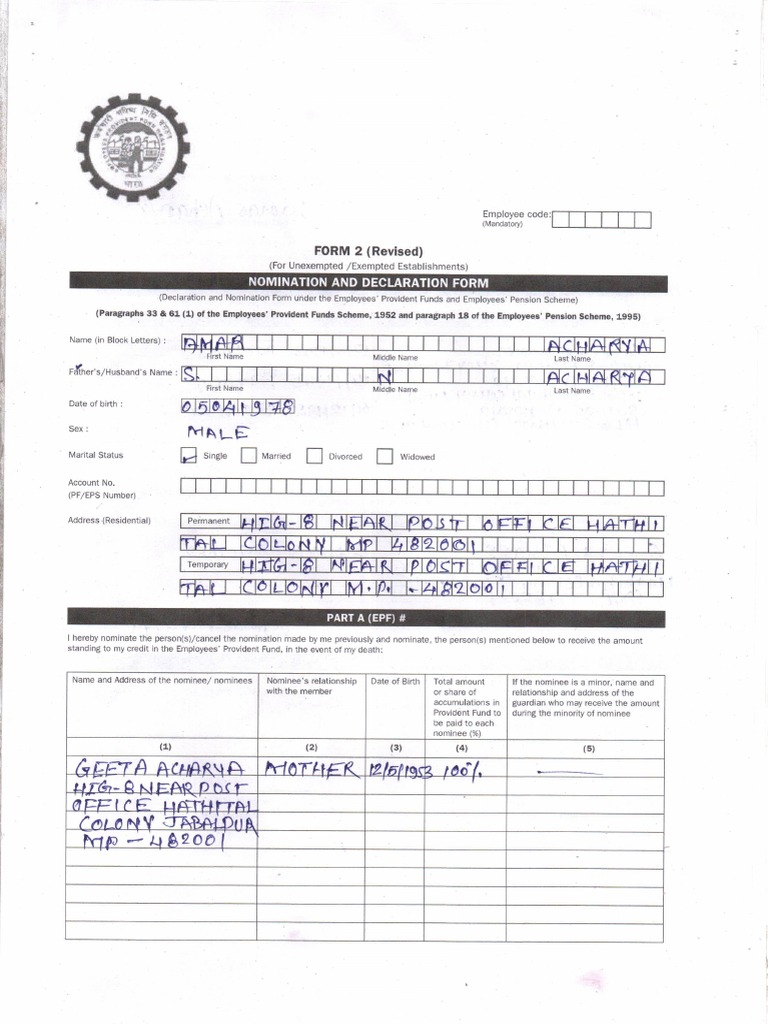 कर्मचारी भविष्य निधि संगठन
EMPLOYEES PROVIDENT FUND ORGANISATION
भारत
Employee code:
(Mandatory)
FORM 2 (Revised)
(For Unexempted /Exempted Establishments)
NOMINATION AND DECLARATION FORM
(Declaration and Nomination Form under the Employees' Provident Funds and Employees' Pension Scheme)
(Paragraphs 33 & 61 (1) of the Employees' Provident Funds Scheme, 1952 and paragraph 18 of the Employees' Pension Scheme, 1995)
Name (in Block Letters) : AMAR ACHARYA
First Name Middle Name Last Name
Father's/Husband's Name : S. N ACHARYA
First Name Middle Name Last Name
Date of birth : 05041978
Sex : MALE
Marital Status Single Married Divorced Widowed
Account No.
(PF/EPS Number)
Address (Residential) Permanent HIG-8 NEAR POST OFFICE HATHI
TAL COLONY MP 482001
Temporary HIG-8 NEAR POST OFFICE HATHI
TAL COLONY M.P. -482001
PART A (EPF) #
I hereby nominate the person(s)/cancel the nomination made by me previously and nominate, the person(s) mentioned below to receive the amount
standing to my credit in the Employees' Provident Fund, in the event of my death:
Name and Address of the nominee/ nominees
Nominee's relationship
with the member
Date of Birth
Total amount
or share of
accumulations in
Provident Fund to
be paid to each
nominee (%)
If the nominee is a minor, name and
relationship and address of the
guardian who may receive the amount
during the minority of nominee
(1) (2) (3) (4) (5)
GEETA ACHARYA MOTHER 12/5/1953 100%
HIG-8 NEAR POST
OFFICE HATHITAL
COLONY JABALPUR
MP - 482001